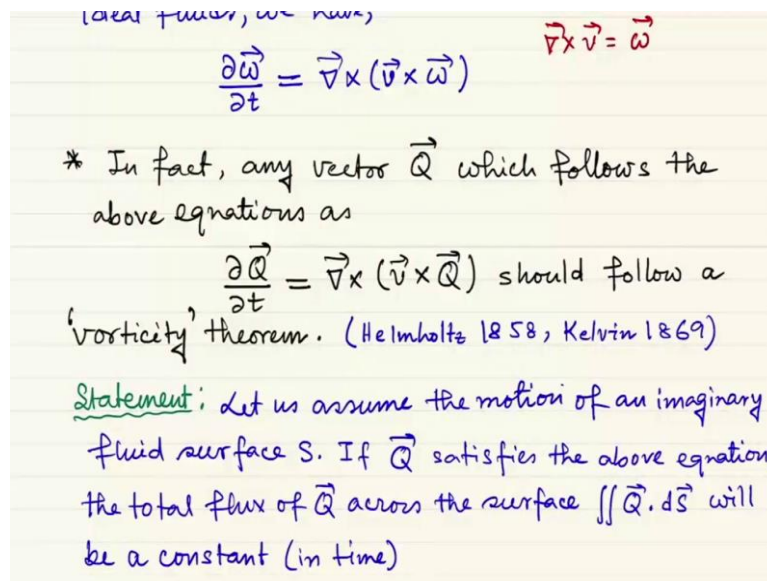 ideal fluids, we have,
∇⃗ × v⃗ = ω⃗
∂ω⃗/∂t = ∇⃗ × (v⃗ × ω⃗)
* In fact, any vector Q⃗ which follows the
above equations as
∂Q⃗/∂t = ∇⃗ × (v⃗ × Q⃗) should follow a
'vorticity' theorem. (Helmholtz 1858, Kelvin 1869)
Statement: Let us assume the motion of an imaginary
fluid surface S. If Q⃗ satisfies the above equation
the total flux of Q⃗ across the surface ∬Q⃗.dS⃗ will
be a constant (in time)